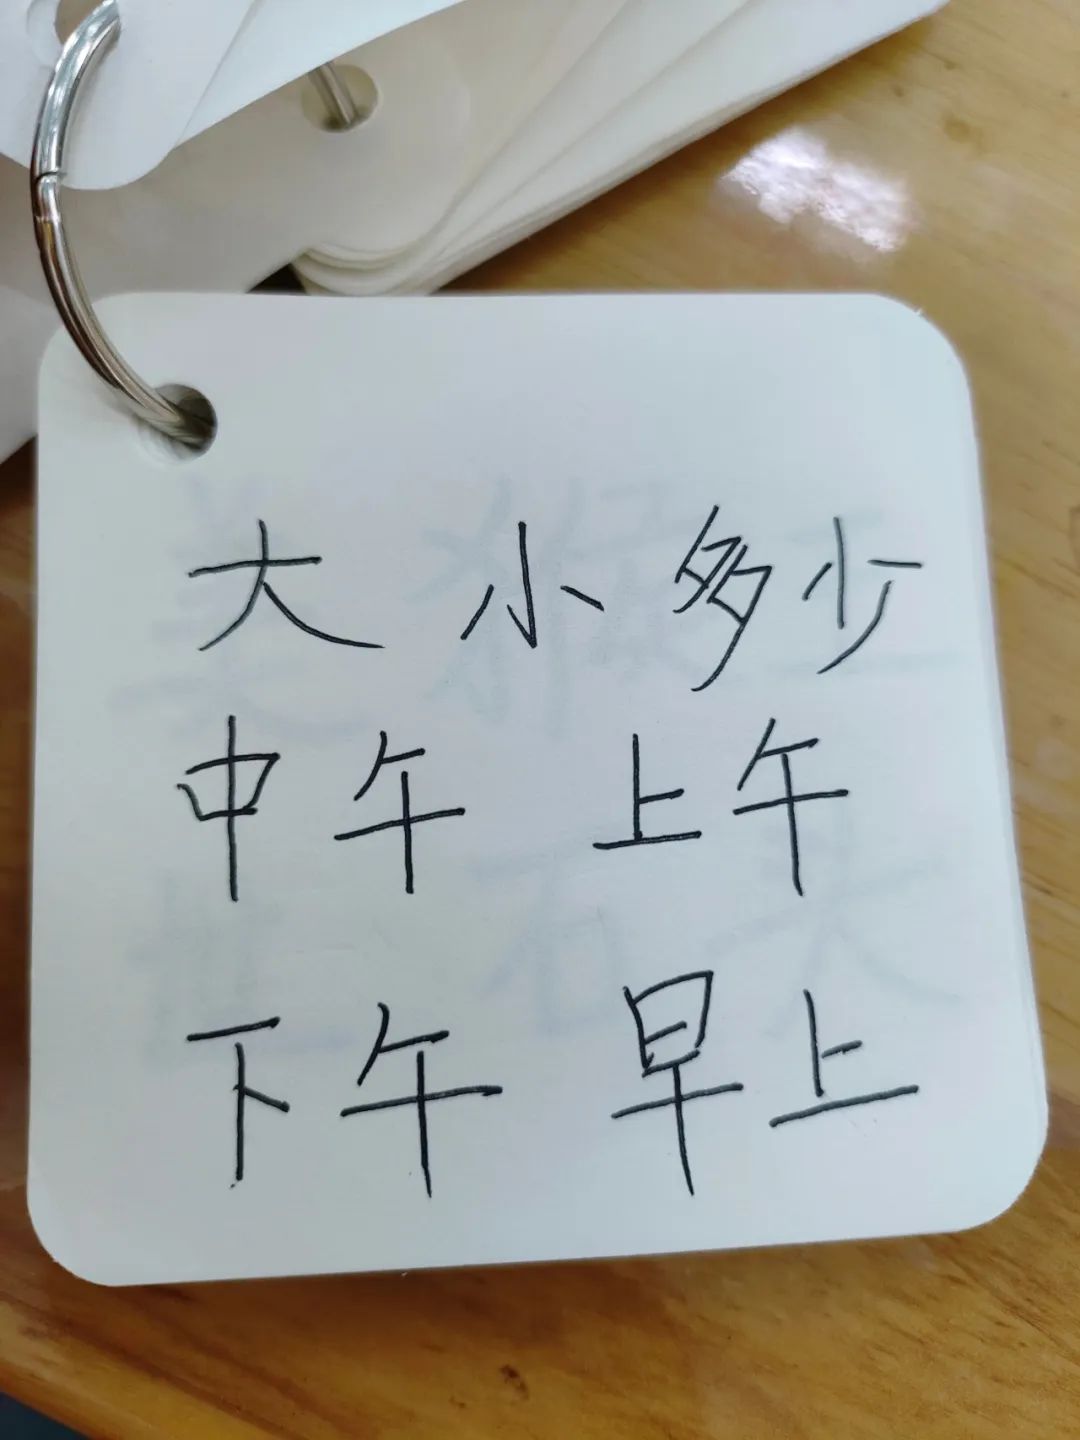 大 小 多少
中午 上午
下午 早上